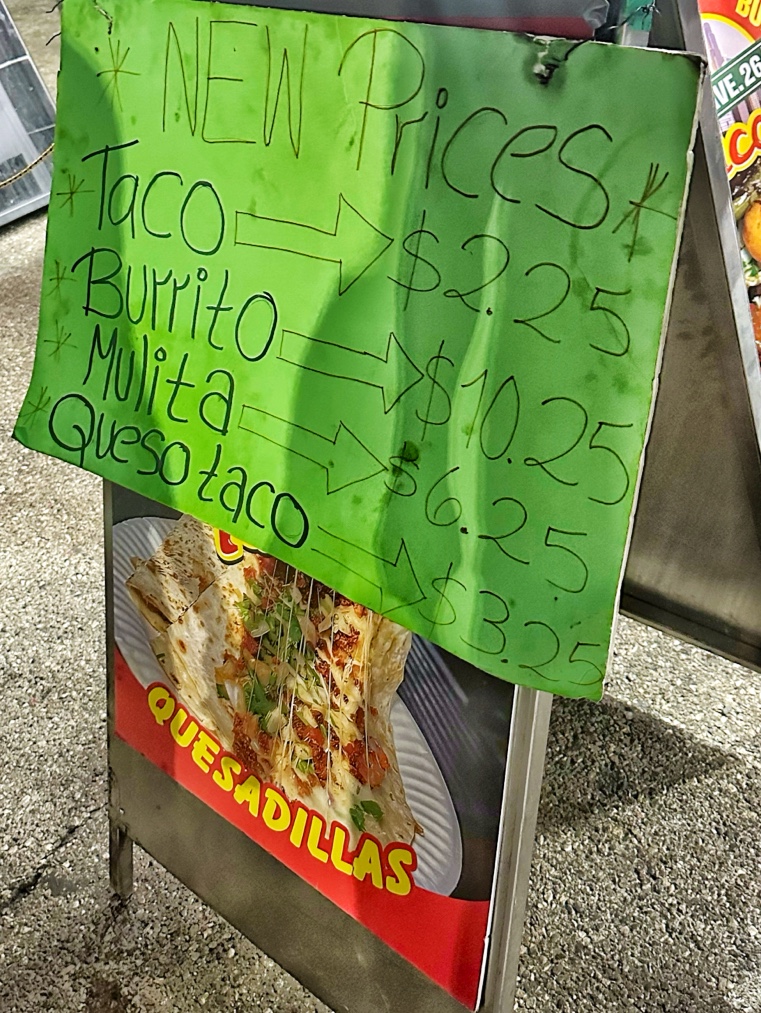 * NEW Prices *
* Taco $2.25
* Burrito $10.25
* Mulita $6.25
* Queso taco $3.25
QUESADILLAS
VE. 26